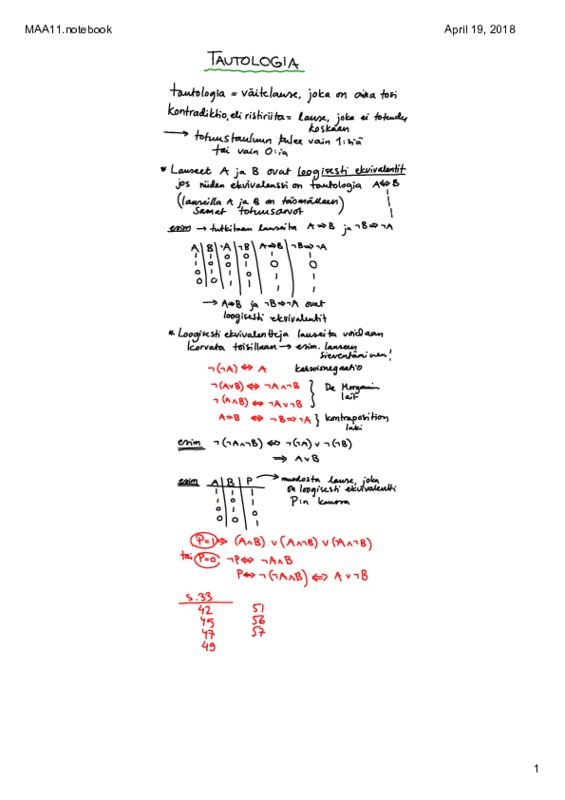 MAA11.notebook
April 19, 2018
TAUTOLOGIA
tautologia = väitelause, joka on aina tosi
kontradiktio, eli ristiriita = lause, joka ei toteudu
koskaan
→ totuustauluun tulee vain 1:siä
tai vain 0:ia
* Lauseet A ja B ovat loogisesti ekvivalentit
jos niiden ekvivalenssi on tautologia A⇔B
(lauseilla A ja B on täsmälleen
samat totuusarvot)
esim → tutkitaan lauseita A⇒B ja ¬B⇒¬A
A B ¬A ¬B A⇒B ¬B⇒¬A
→ A⇒B ja ¬B⇒¬A ovat
loogisesti ekvivalentit
* Loogisesti ekvivalentteja lauseita voidaan
korvata toisillaan → esim. lauseen
sieventäminen!
¬(¬A) ⇔ A kaksoisnegaatio
¬(A∨B) ⇔ ¬A∧¬B } De Morganin
¬(A∧B) ⇔ ¬A∨¬B lait
A⇒B ⇔ ¬B⇒¬A } kontraposition
laki
esim ¬(¬A∧¬B) ⇔ ¬(¬A) ∨ ¬(¬B)
⇒ A∨B
esim A B P → muodosta lause, joka
on loogisesti ekvivalentti
P:n kanssa
P=1 ⇔ (A∧B) ∨ (A∧¬B) ∨ (¬A∧¬B)
tai P=0 ¬P ⇔ ¬A∧B
P ⇔ ¬(¬A∧B) ⇔ A ∨ ¬B
s.33
42 51
45 56
47 57
49
1